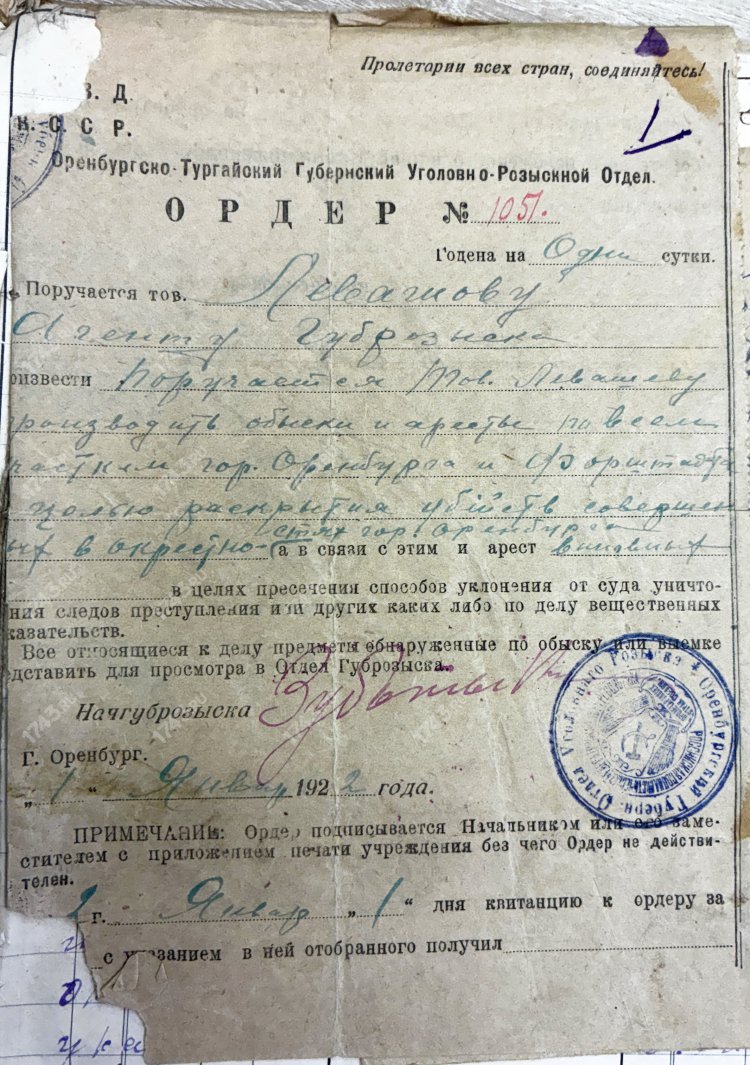 Пролетарии всех стран, соединяйтесь!
З. Д.
К. С. С. Р.
Оренбургско-Тургайский Губернский Уголовно-Розыскной Отдел.
ОРДЕР № 1051.
Годена на Одни сутки.
Поручается тов. Левашову
Агенту Губрозыска
оизвести Поручается Тов. Левашеву
роизводить обыски и аресты по всем
частким гор. Оренбурга и Форштадта
целью раскрытия убійств совершен
ых в окрестно-стях гор. Оренбурга
а в связи с этим и арест виновных
в целях пресечения способов уклонения от суда уничто-
ния следов преступления или других каких либо по делу вещественных
казательств.
Все относящиеся к делу предметы обнаруженные по обыску или выемке
едставить для просмотра в Отдел Губрозыска.
Начгуброзыска
Г. Оренбург.
„1“ Январ 1922 года.
ПРИМЕЧАНИЕ: Ордер подписывается Начальником или его заме-
стителем с приложением печати учреждения без чего Ордер не действи-
телен.
2 г. Январ „1“ дня квитанцию к ордеру за
с указанием в ней отобранного получил
Отдел Уголовнаго Розыска * Оренбургский Губерн.
1743.ru